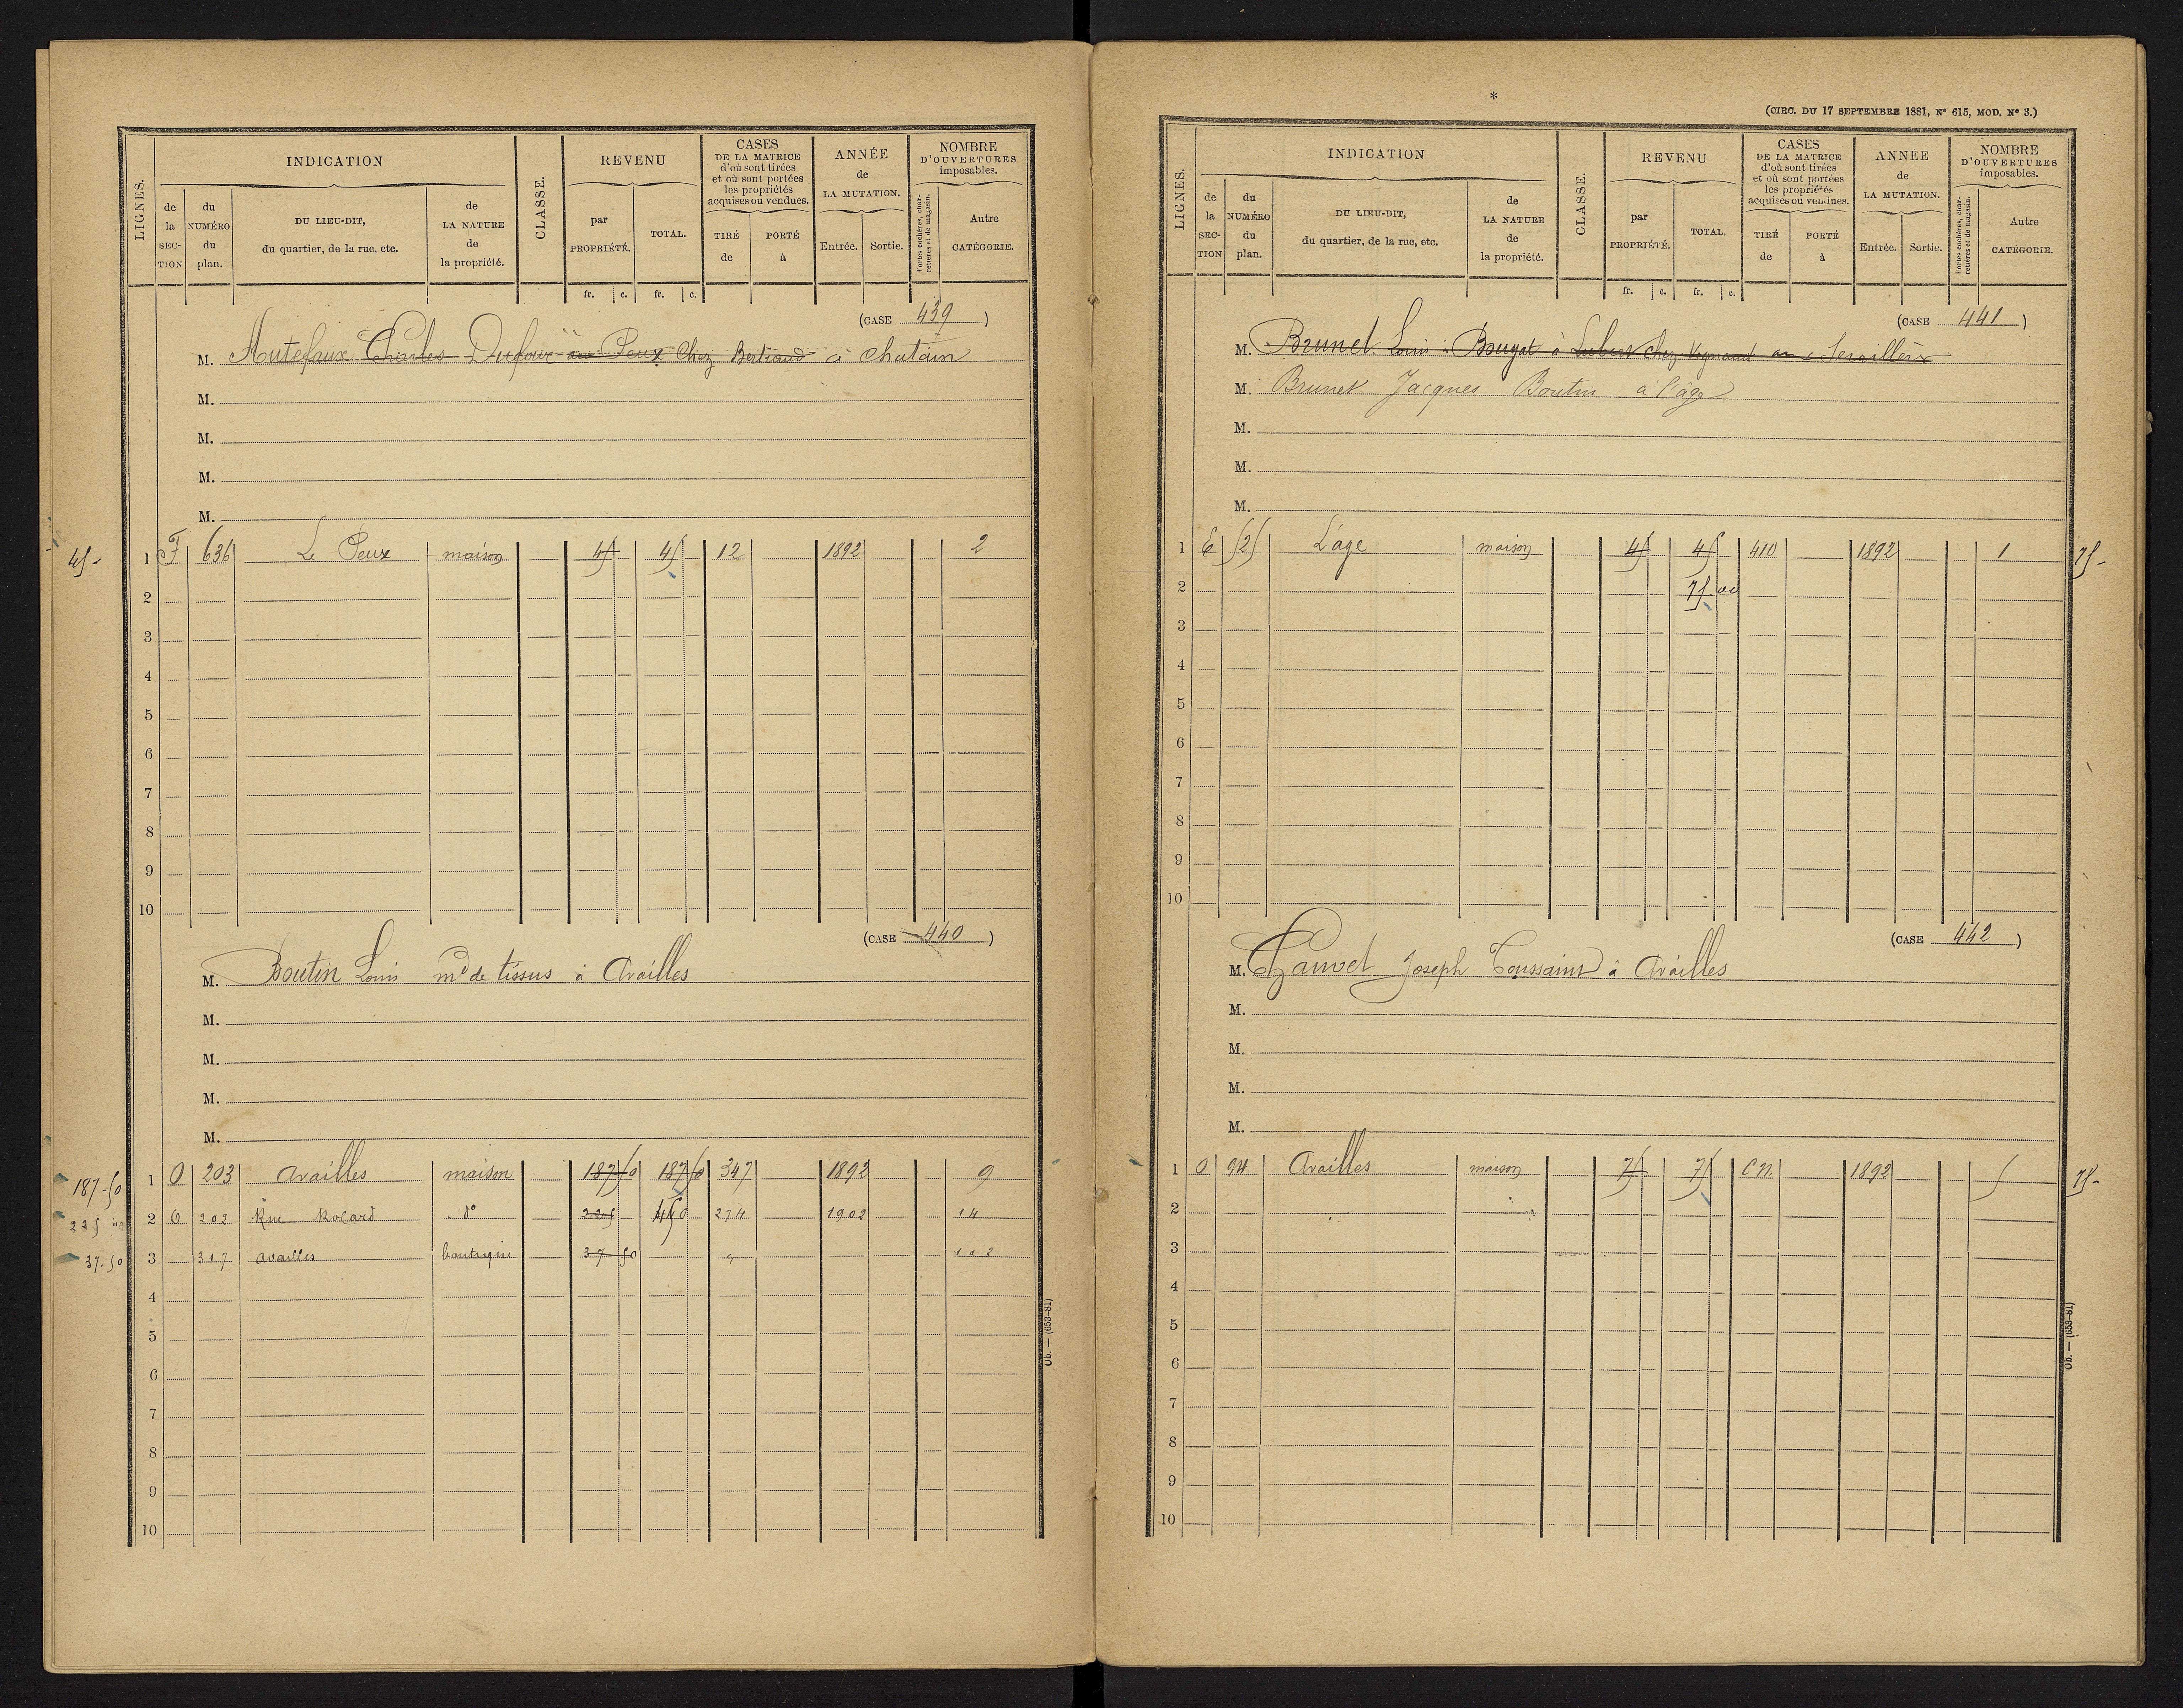 LIGNES.
INDICATION
de la SECTION
du NUMÉRO du plan.
DU LIEU-DIT, du quartier, de la rue, etc.
de LA NATURE de la propriété.
CLASSE.
REVENU
par PROPRIÉTÉ.
TOTAL.
fr. c. fr. c.
CASES DE LA MATRICE d'où sont tirées et où sont portées les propriétés acquises ou vendues.
TIRÉ de
PORTÉ à
ANNÉE de LA MUTATION.
Entrée. Sortie.
NOMBRE D'OUVERTURES imposables.
Portes cochères, charretières et de magasin.
Autre CATÉGORIE.
(CASE 439)
M. Autefaux Charles Dufour au Peux Chez Bertrand à chatain
M.
M.
M.
M.
45- 1 F 636 Le Peux maison 45 45 12 1892 2
2
3
4
5
6
7
8
9
10
(CASE 440)
M. Boutin Louis md de tissus à Availles
M.
M.
M.
M.
187-50 1 O 203 Availles maison 187 50 187 50 347 1892 9
225 2 O 202 Rue Rocard do 225 450 274 1902 14
37.50 3 317 availles boutique 37 50 " 102
4
5
6
7
8
9
10
Ob. — (653-81)
*
(CIRC. DU 17 SEPTEMBRE 1881, N° 615, MOD. N° 3.)
LIGNES.
INDICATION
de la SECTION
du NUMÉRO du plan.
DU LIEU-DIT, du quartier, de la rue, etc.
de LA NATURE de la propriété.
CLASSE.
REVENU
par PROPRIÉTÉ.
TOTAL.
fr. c. fr. c.
CASES DE LA MATRICE d'où sont tirées et où sont portées les propriétés acquises ou vendues.
TIRÉ de
PORTÉ à
ANNÉE de LA MUTATION.
Entrée. Sortie.
NOMBRE D'OUVERTURES imposables.
Portes cochères, charretières et de magasin.
Autre CATÉGORIE.
(CASE 441)
M. Brunet Louis Bouyat à chez
M. Brunet Jacques Boutin à l'âge
M.
M.
M.
1 E 525 L'age maison 45 45 410 1892 1 75-
2 75 00
3
4
5
6
7
8
9
10
(CASE 442)
M. Chauvet Joseph Toussaint à Availles
M.
M.
M.
M.
1 O 94 Availles maison 75 75 C.N. 1892 5 75-
2
3
4
5
6
7
8
9
10
Ob. — (653-81)